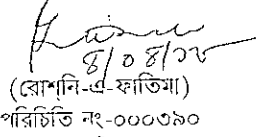 8/08/১৮
(রোশনি-এ-ফাতিমা)
পরিচিতি নং-০০০৩৯০